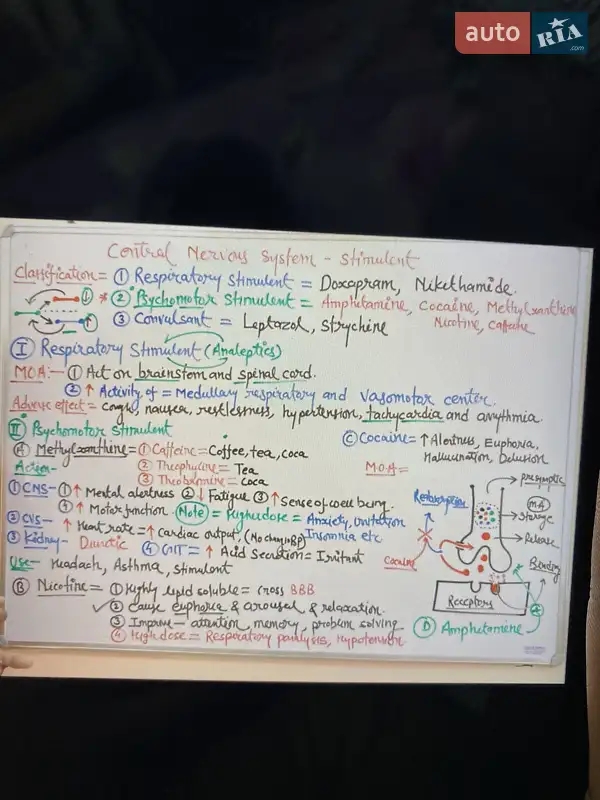 auto RIA .com
Central Nervous System - Stimulent
Classification = ① Respiratory Stimulent = Doxapram, Nikethamide.
* ② Psychomotor Stimulent = Amphetamine, Cocaine, Methylxanthine
Nicotine, Caffeine
③ Convulsant = Leptazol, Strychine
Ⅰ Respiratory Stimulent (Analeptics)
MOA:- ① Act on brainstem and spinal cord.
② ↑ Activity of = Medullary respiratory and vasomotor center.
Adverse effect = cough, nausea, restlessness, hypertension, tachycardia and arrythmia.
Ⅱ Psychomotor Stimulent
Ⓐ Methylxanthine = ① Caffeine = Coffee, tea, coca
② Theophyline = Tea
③ Theobromine = coca
Action-
① CNS- ① ↑ Mental alertness ② ↓ Fatigue ③ ↑ Sense of well being.
④ ↑ Motor function Note = High dose = Anxiety, irritation
Insomnia etc
② CVS- ↑ Heart rate = ↑ Cardiac output, (No change BP)
③ Kidney- Diuretic ④ GIT = ↑ Acid Secretion = Irritant
Use- Headach, Asthma, stimulant
Ⓑ Nicotine = ① Highly lipid soluble = cross BBB
② cause euphoria & arousal & relaxation.
③ Improve - attention, memory, problem solving.
④ High dose = Respiratory paralysis, Hypotension
Ⓒ Cocaine = ↑ Alertness, Euphoria,
Hallucination, Delusion
M.O.A =
presynaptic
Reabsorption
MA
Storage
Release
Cocaine
Binding
Receptors
Ⓓ Amphetamine